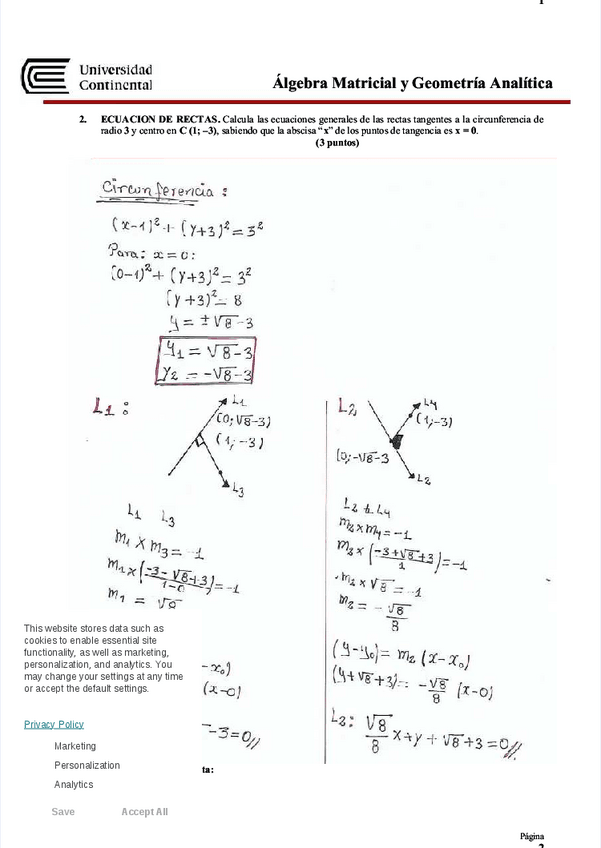 Universidad
Continental
Álgebra Matricial y Geometría Analítica
2. ECUACION DE RECTAS. Calcula las ecuaciones generales de las rectas tangentes a la circunferencia de
radio 3 y centro en C (1; –3), sabiendo que la abscisa “x” de los puntos de tangencia es x = 0.
(3 puntos)
Circunferencia :
(x-1)² + (y+3)² = 3²
Para: x = 0:
(0-1)² + (y+3)² = 3²
(y+3)² = 8
y = ±√8 -3
y₁ = √8 -3
y₂ = -√8 -3
L1 :
L1
(0; √8-3)
(1; -3)
L3
L1 L3
m₁ x m₃ = -1
m₁ x (-3-√8+3)/(1-0) = -1
m₁ = √8
-x₀)
(x-0)
-3=0//
L2
L4
(1; -3)
(0; -√8-3
L2
L2 ⊥ L4
m₂ x m₄ = -1
m₂ x (-3+√8+3)/1 = -1
m₂ x √8 = -1
m₂ = -√8/8
(y-y₀) = m₂ (x-x₀)
(y+√8+3) = -√8/8 (x-0)
L2: √8/8 x+y+√8+3=0//
This website stores data such as
cookies to enable essential site
functionality, as well as marketing,
personalization, and analytics. You
may change your settings at any time
or accept the default settings.
Privacy Policy
Marketing
Personalization
Analytics
Save Accept All
ta:
Página
2